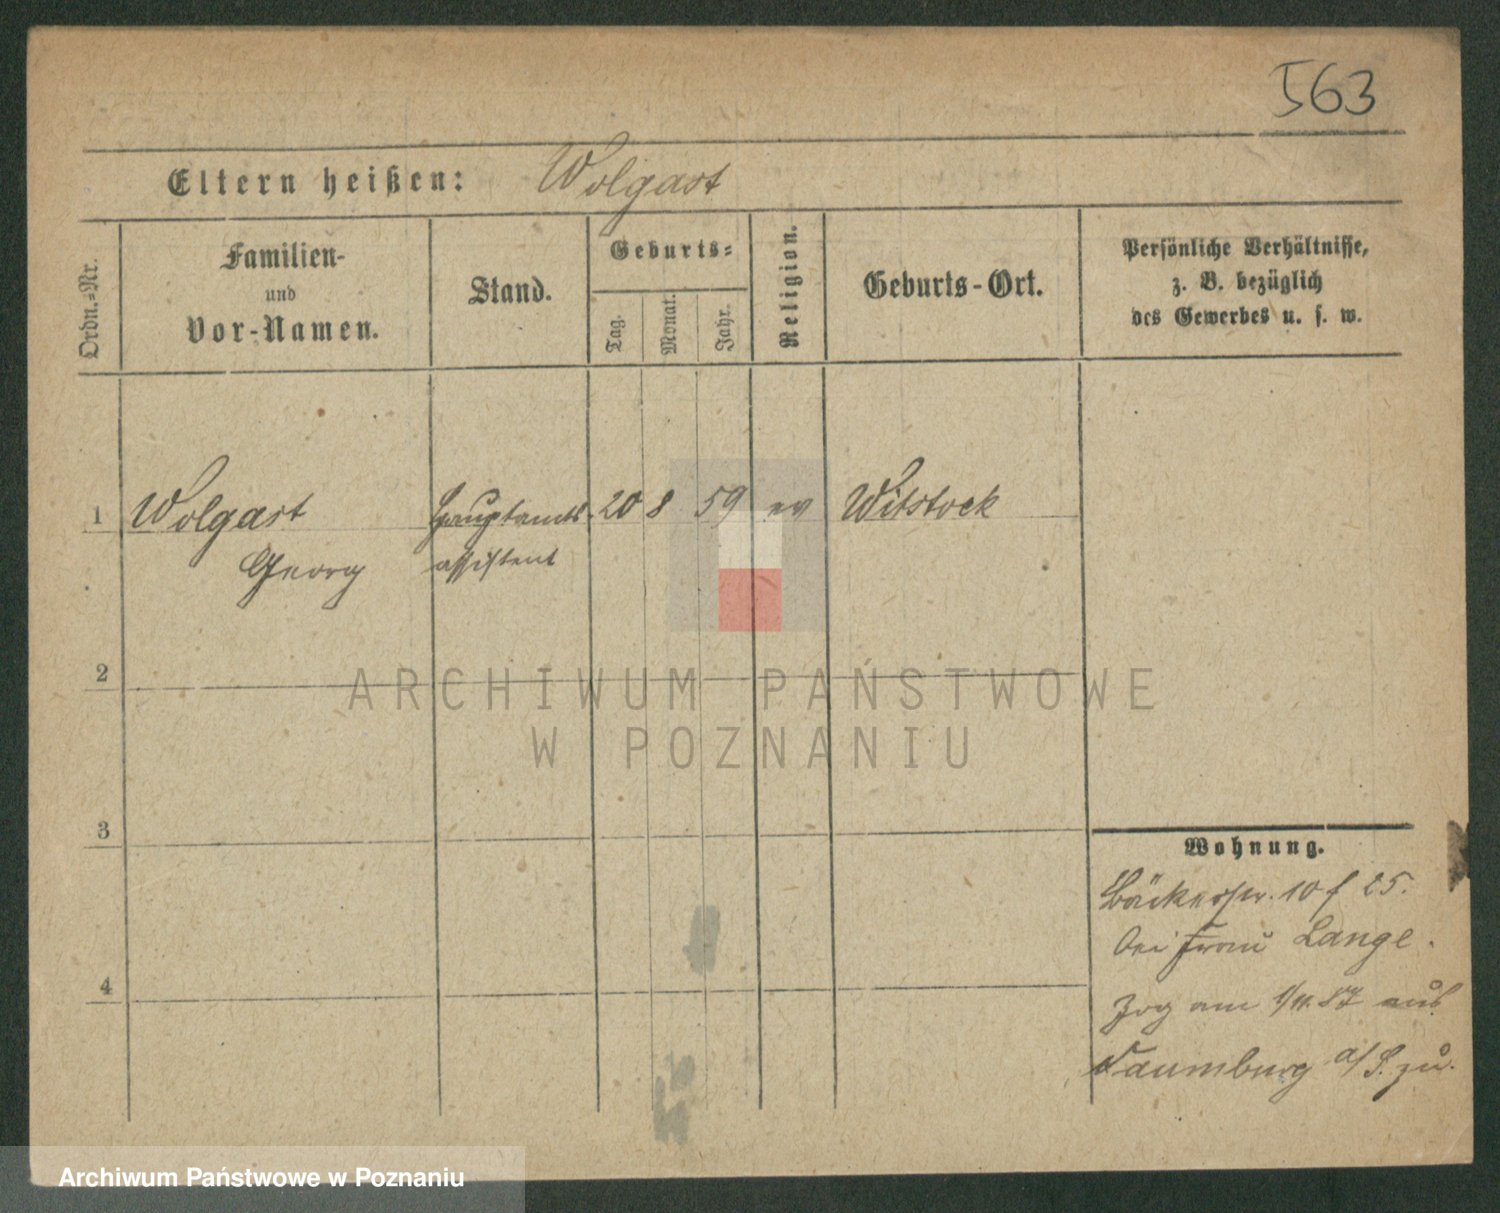 563
Eltern heißen: Wolgast
Ordn.-Nr.
Familien-
und
Vor-Namen.
Stand.
Geburts-
Tag.
Monat.
Jahr.
Religion.
Geburts-Ort.
Persönliche Verhältnisse,
z. B. bezüglich
des Gewerbes u. s. w.
1 Wolgast Hauptamts- 20 8 59 ev Witstock
Georg assistent
2
ARCHIWUM PAŃSTWOWE
W POZNANIU
3
4
Wohnung.
Bäckerstr. 10 f 25.
bei Frau Lange.
Zog am 1/11. 87 aus
Naumburg a/S. zu.
Archiwum Państwowe w Poznaniu